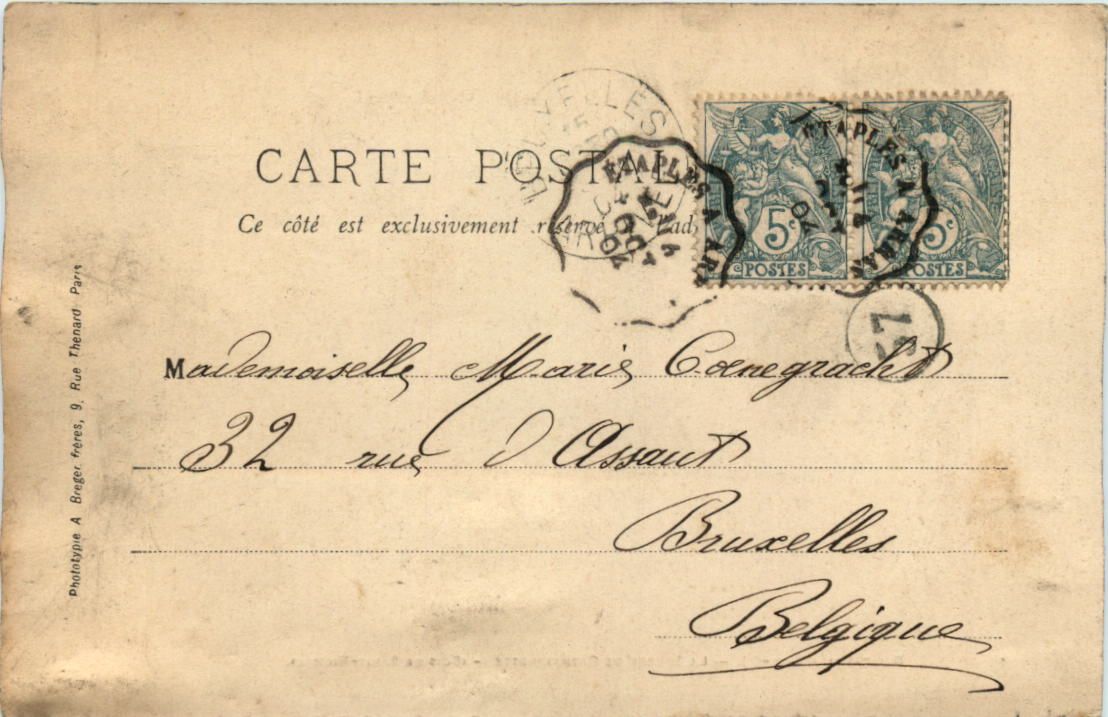 CARTE POSTALE
Ce côté est exclusivement réservé l'ad
5c
POSTES
5c
POSTES
BRUXELLES
ETAPLES A AR
ETAPLES A ARRAS
04
04
Mademoiselle Marie Coenegracht
32 rue d'Assaut
Bruxelles
Belgique
Phototypie A Breger frères, 9, Rue Thenard Paris